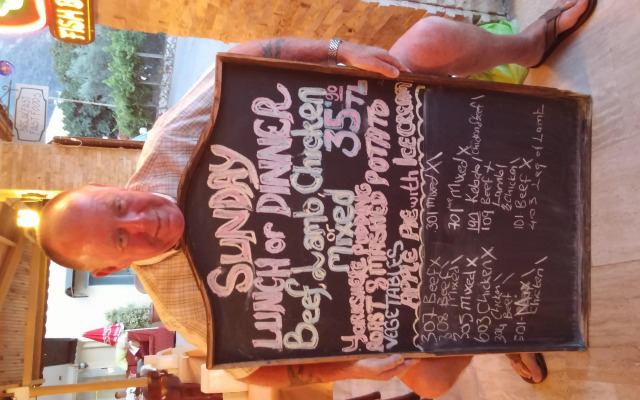 SUNDAY
LUNCH or DINNER
Beef, Lamb Chicken
or
Mixed
35.90 TL
YORKSHIRE PUDDING
ROAST & MASHED POTATO
VEGETABLES
APPLE PIE with ICE CREAM
307 Beef X
308 Beef
Mixed
505 Mixed X
603 Chicken X
Chicken
Beef
501
Chicken
301 Mixed XX
701 Mixed X
109 Beef X
Lamb
& Chicken
101 Beef X
403 Leg of Lamb
FISH